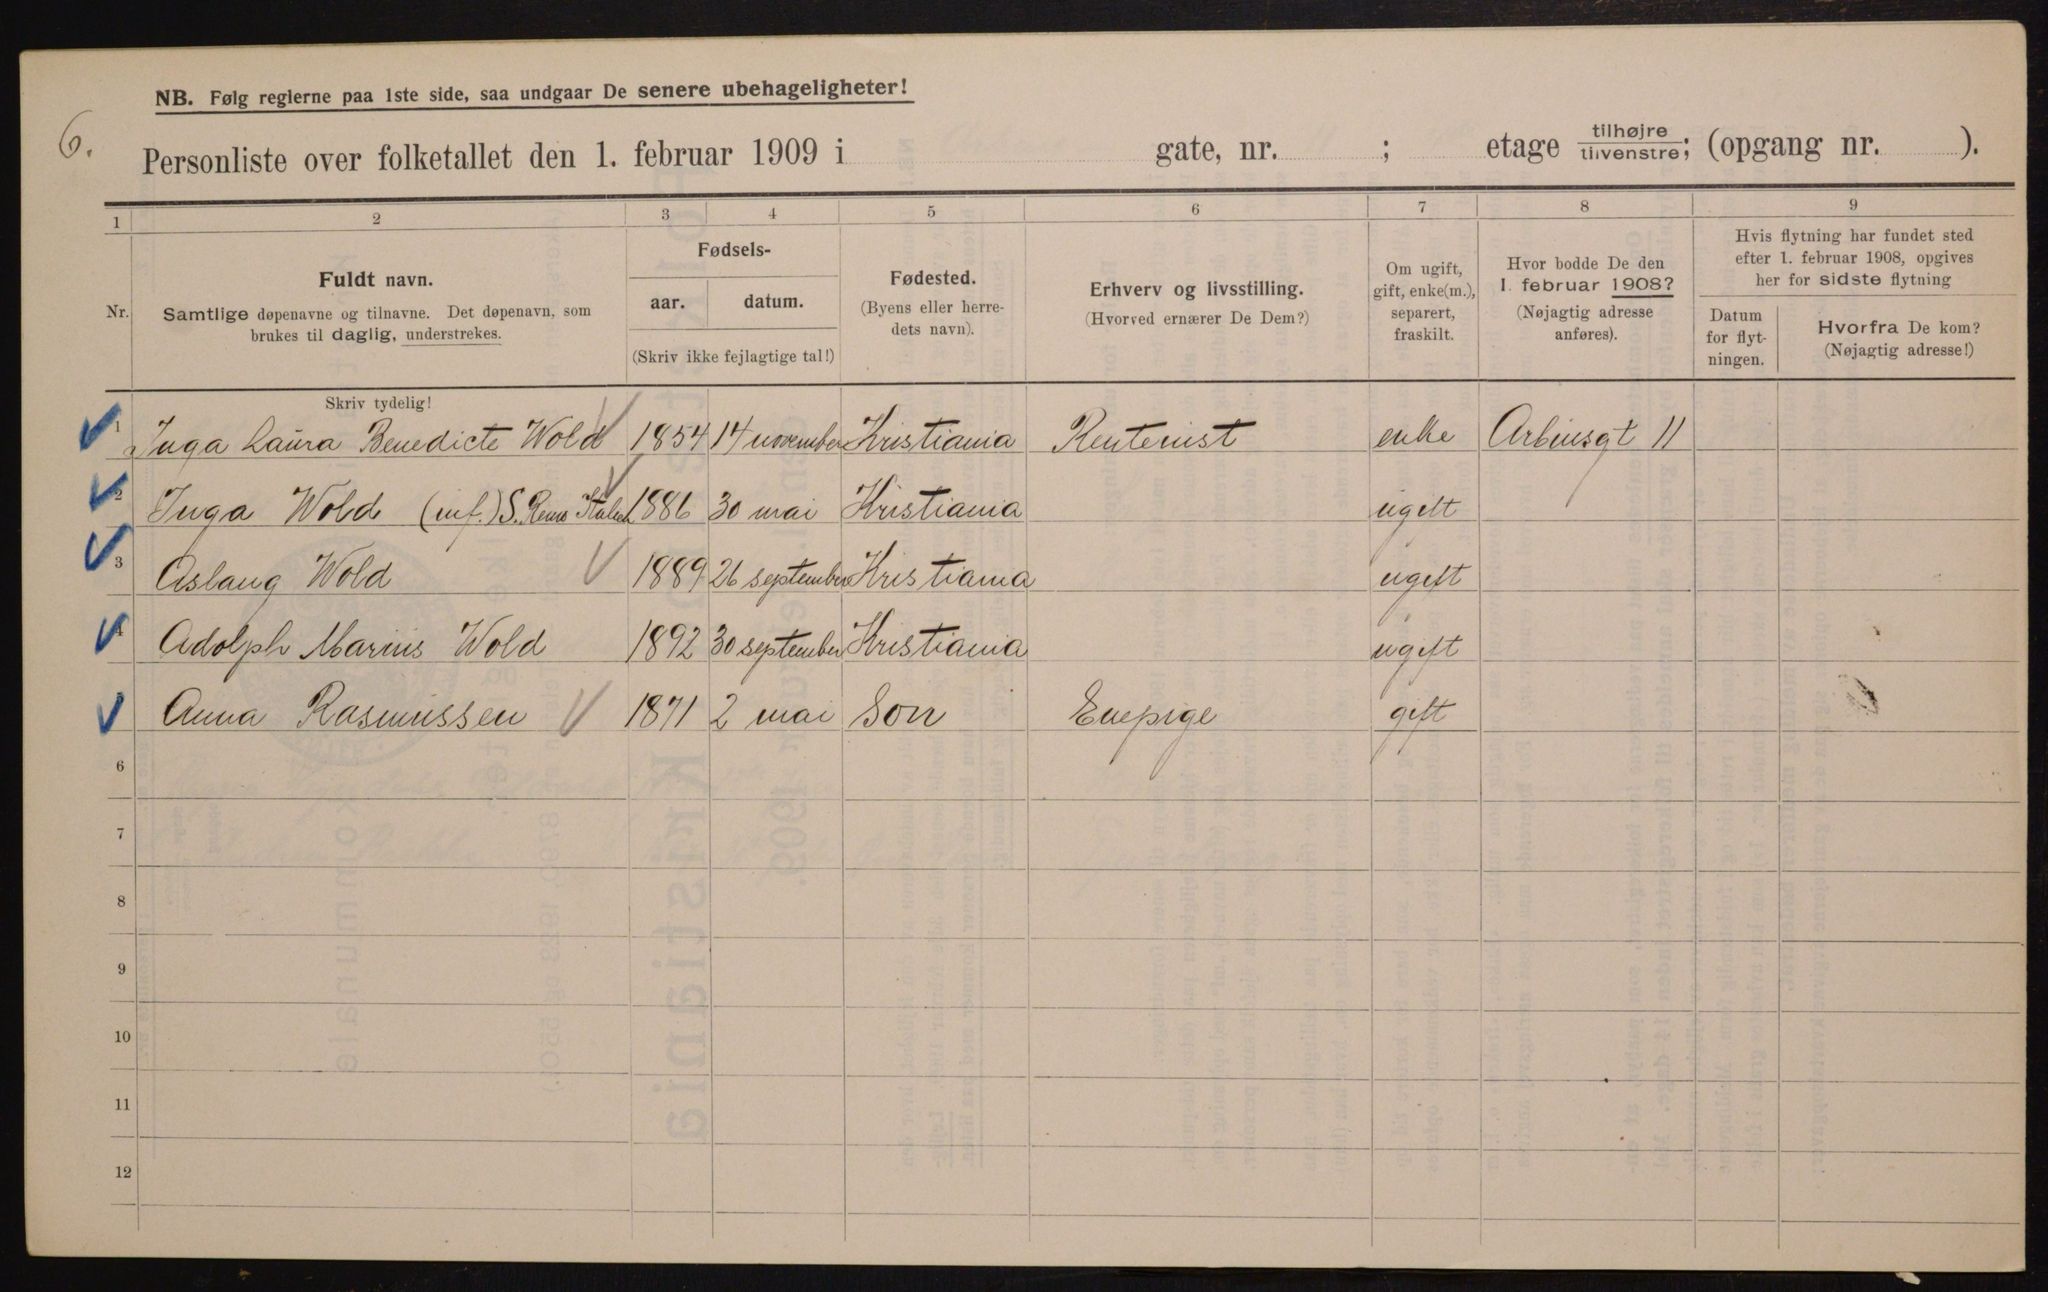 NB. Følg reglerne paa 1ste side, saa undgaar De senere ubehageligheter!
6.
Personliste over folketallet den 1. februar 1909 i gate, nr. ; etage tilhøjre/tilvenstre; (opgang nr. ).
1 2 3 4 5 6 7 8 9
Nr.
Fuldt navn.
Samtlige døpenavne og tilnavne. Det døpenavn, som
brukes til daglig, understrekes.
Fødsels-
aar. datum.
(Skriv ikke fejlagtige tal!)
Fødested.
(Byens eller herre-
dets navn).
Erhverv og livsstilling.
(Hvorved ernærer De Dem?)
Om ugift,
gift, enke(m.),
separert,
fraskilt.
Hvor bodde De den
1. februar 1908?
(Nøjagtig adresse
anføres).
Hvis flytning har fundet sted
efter 1. februar 1908, opgives
her for sidste flytning
Datum
for flyt-
ningen.
Hvorfra De kom?
(Nøjagtig adresse!)
Skriv tydelig!
1 Inga Laura Benedicte Wold 1854 14 november Kristiania Rentenist enke Arbinsgt 11
2 Inga Wold (mf.) S. Remo Italien 1886 30 mai Kristiania ugift
3 Aslaug Wold 1889 26 september Kristiania ugift
4 Adolph Marius Wold 1892 30 september Kristiania ugift
Anna Rasmussen 1871 2 mai Son Enepige gift
6
7
8
9
10
11
12